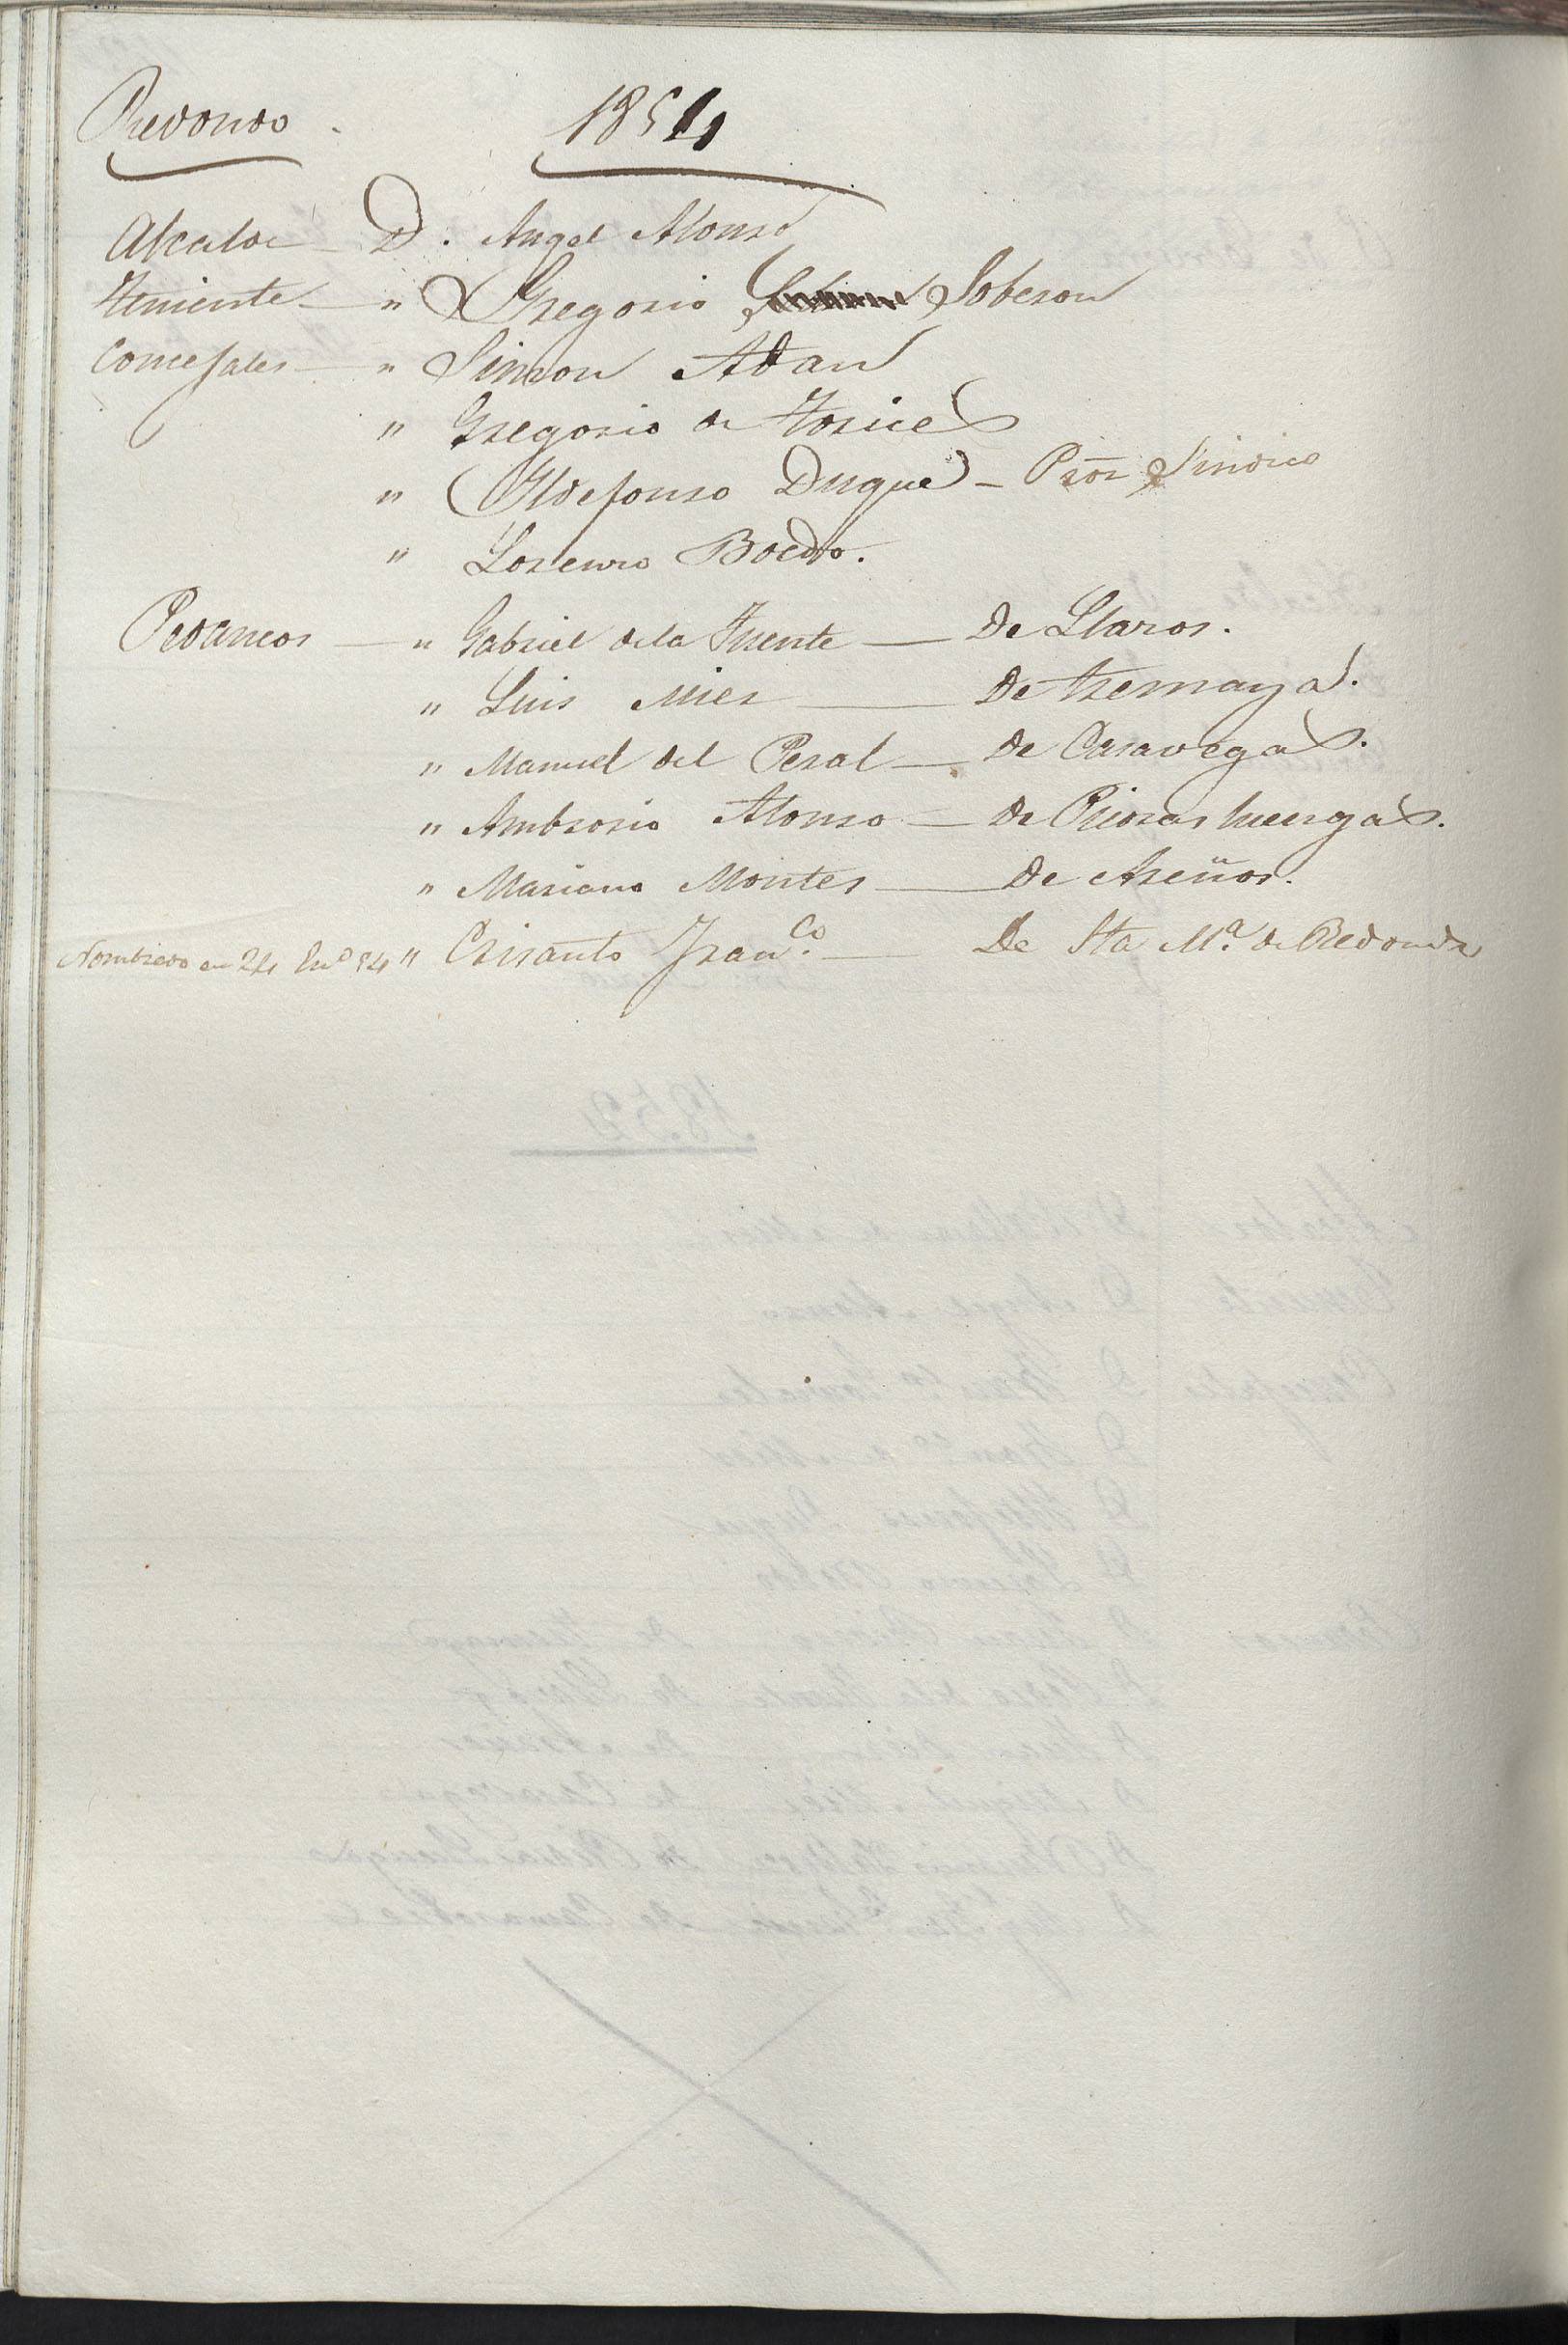 Redondo. 1854
Alcalde D. Angel Alonso
Teniente " Gregorio Soberon
Concejales " Simon Adan
" Gregorio de Torices
" Ildefonso Duque - Pror Sindico
" Lorenzo Boedo.
Pedaneos " Gabriel de la Fuente De Llazos.
" Luis Mier De tremaya.
" Manuel del Peral de Casavegas.
" Ambrosio Alonso de Piedras luengas.
" Mariano Montes De Areños.
Nombrado en 24 Eno 54 " Crisanto Franco. De Sta Ma. de Redondo